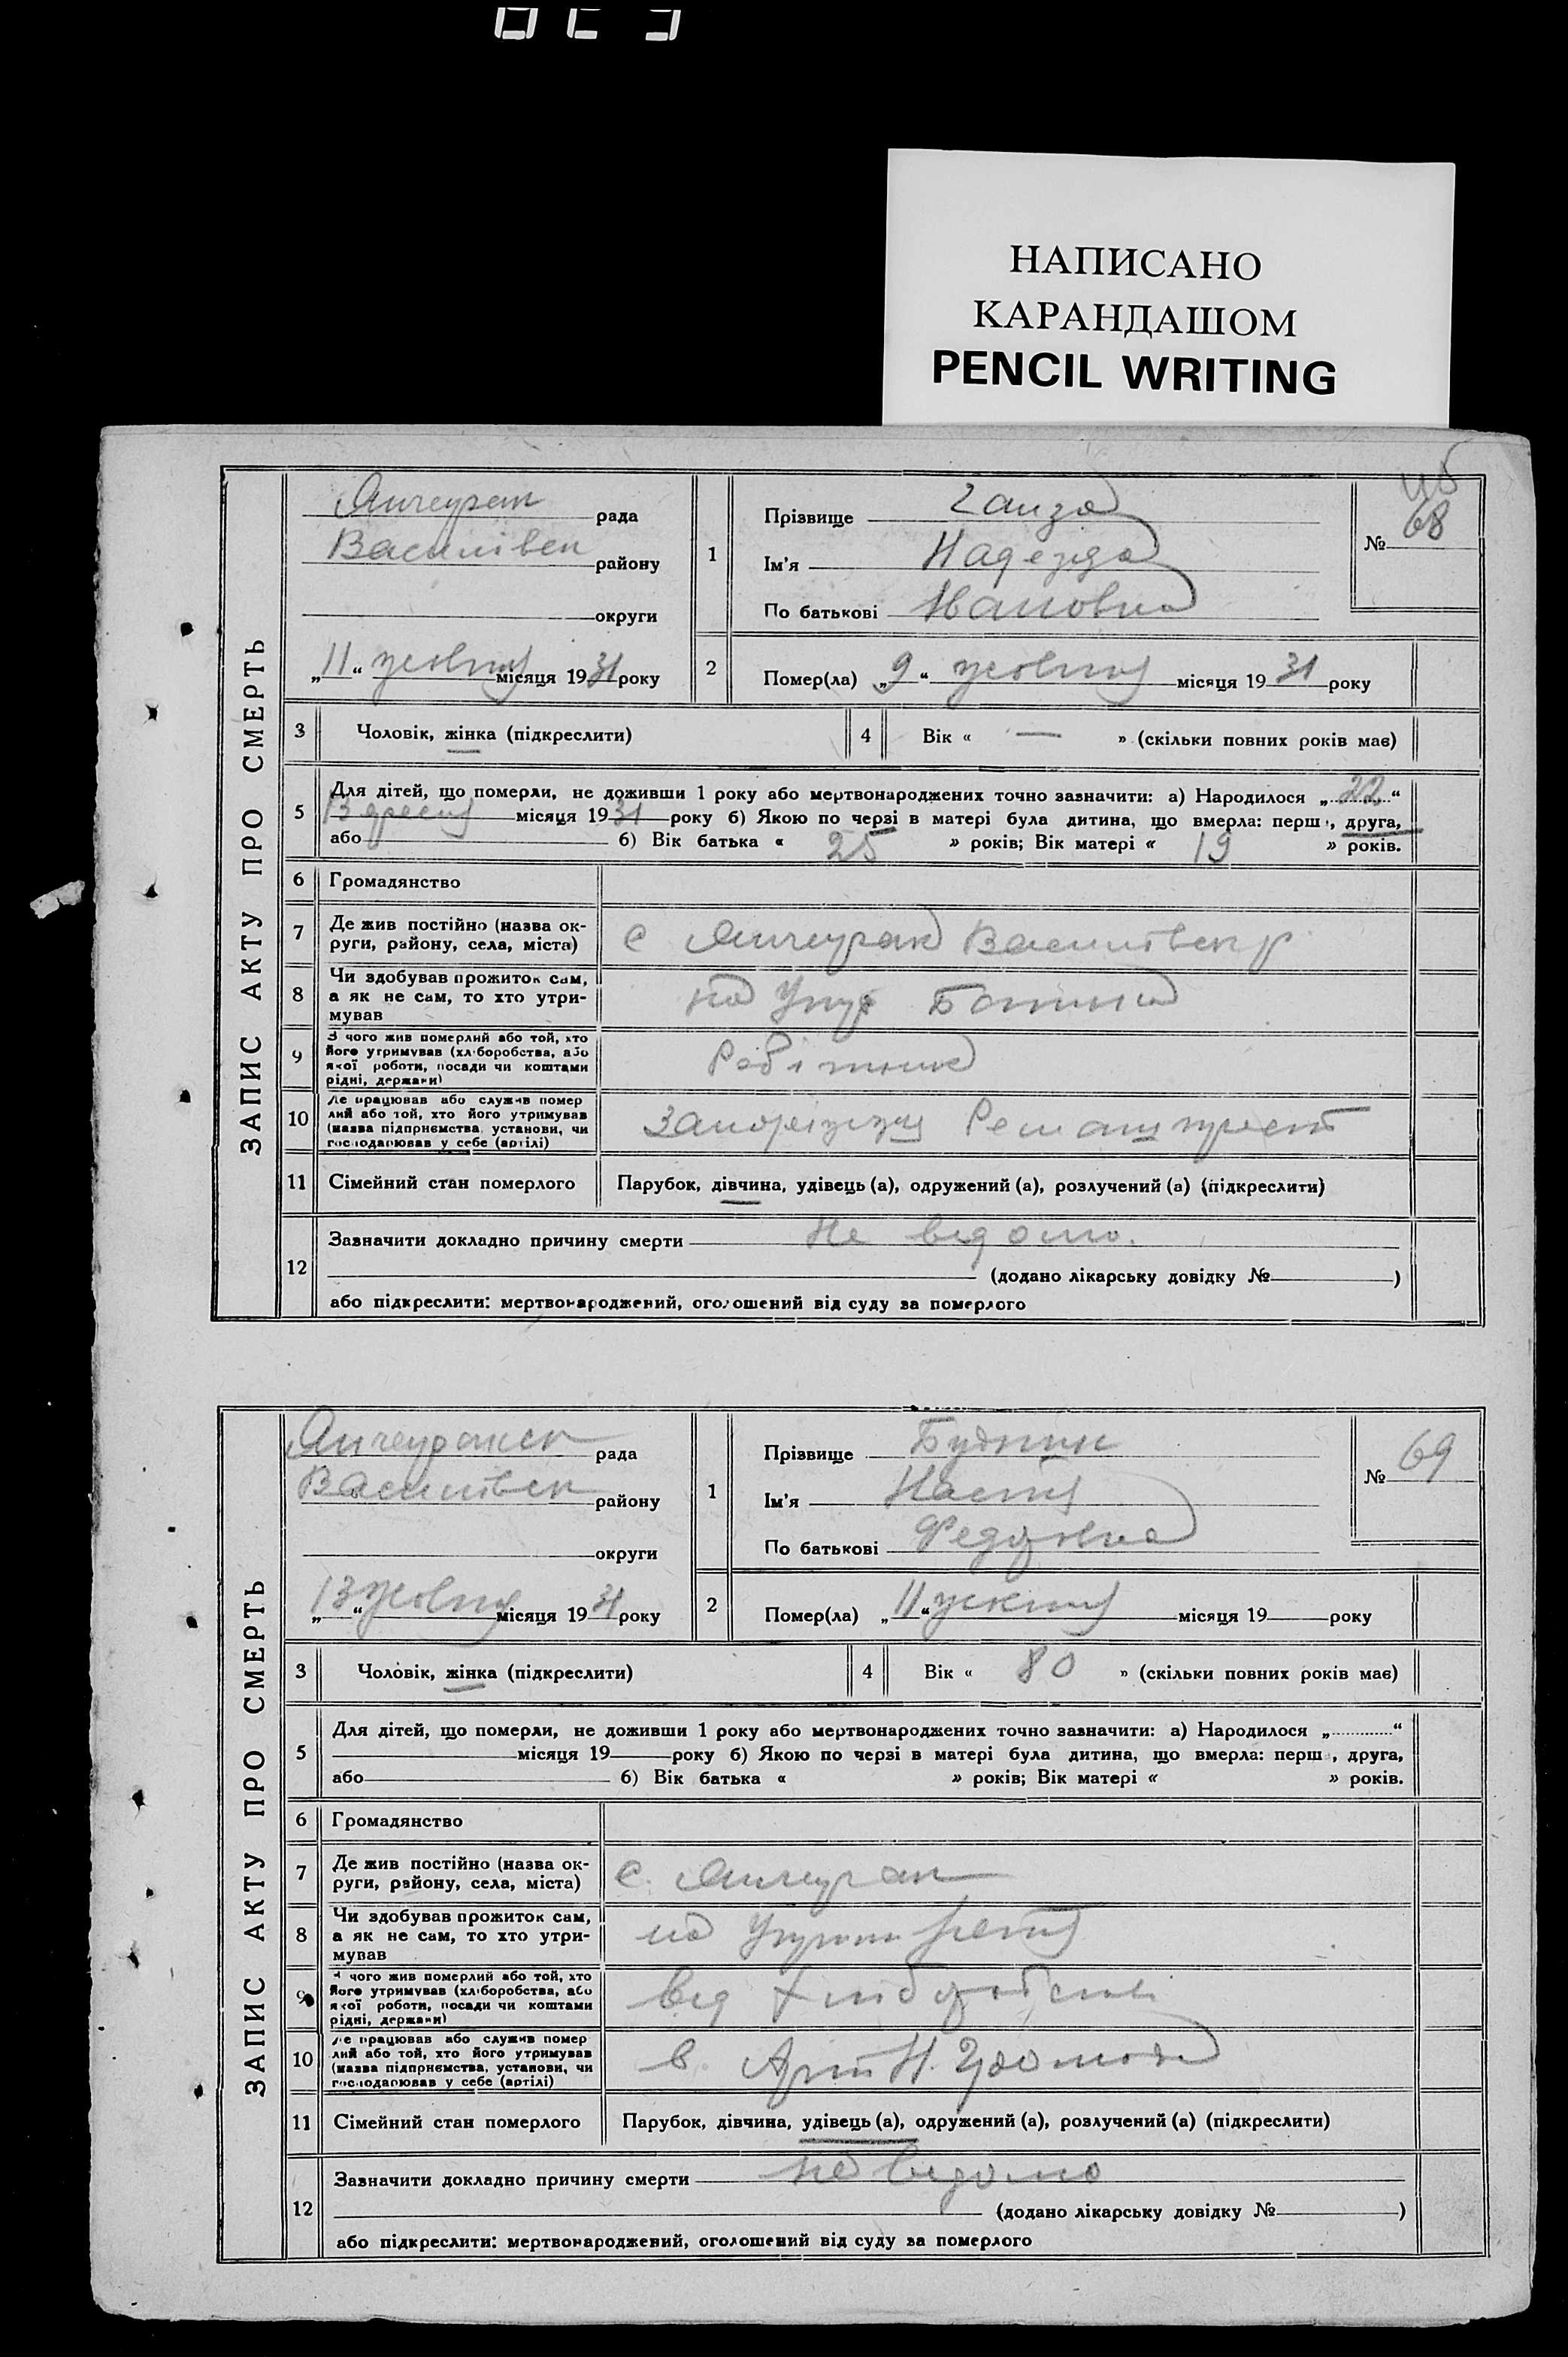 НАПИСАНО
КАРАНДАШОМ
PENCIL WRITING
ЗАПИС АКТУ ПРО СМЕРТЬ
Янчекрак рада
Василівськ району
округи
„11“ жовтня місяця 1931 року
1
Прізвище Ганза
Ім'я Надежда
По батькові Івановна
№ 68
2
Помер(ла) „9“ жовтня місяця 1931 року
3 Чоловік, жінка (підкреслити)
4 Вік « — » (скільки повних років має)
5
Для дітей, що померли, не доживши 1 року або мертвонароджених точно зазначити: а) Народилося „22“
вресня місяця 1931 року б) Якою по черзі в матері була дитина, що вмерла: перш, друга,
або б) Вік батька « 25 » років; Вік матері « 19 » років.
6 Громадянство
7 Де жив постійно (назва ок-
руги, району, села, міста)
с Янчекрак Василівськ р
8 Чи здобував прожиток сам,
а як не сам, то хто утри-
мував
на Утр Батька
9 З чого жив померлий або той, хто
його утримував (хліборобства, або
якої роботи, посади чи коштами
рідні, держави)
Робітника
10 Де працював або служив помер
лий або той, хто його утримував
(назва підприємства, установи, чи
господарював у себе (артілі)
Запоріжжя
11 Сімейний стан померлого
Парубок, дівчина, удівець (а), одружений (а), розлучений (а) (підкреслити)
12
Зазначити докладно причину смерти Не відомо.
(додано лікарську довідку № )
або підкреслити: мертвонароджений, оголошений від суду за померлого
ЗАПИС АКТУ ПРО СМЕРТЬ
Янчекракск рада
Василівск району
округи
„13“ жовтня місяця 1931 року
1
Прізвище Будник
Ім'я Настя
По батькові Федоровна
№ 69
2
Помер(ла) „11“ місяця 19 року
3 Чоловік, жінка (підкреслити)
4 Вік « 80 » (скільки повних років має)
5
Для дітей, що померли, не доживши 1 року або мертвонароджених точно зазначити: а) Народилося „ “
місяця 19 року б) Якою по черзі в матері була дитина, що вмерла: перш, друга,
або б) Вік батька « » років; Вік матері « » років.
6 Громадянство
7 Де жив постійно (назва ок-
руги, району, села, міста)
с. Янчекрак
8 Чи здобував прожиток сам,
а як не сам, то хто утри-
мував
на
9 З чого жив померлий або той, хто
його утримував (хліборобства, або
якої роботи, посади чи коштами
рідні, держави)
від хліборобства
10 Де працював або служив помер
лий або той, хто його утримував
(назва підприємства, установи, чи
господарював у себе (артілі)
в Арт Н.
11 Сімейний стан померлого
Парубок, дівчина, удівець (а), одружений (а), розлучений (а) (підкреслити)
12
Зазначити докладно причину смерти не відомо
(додано лікарську довідку № )
або підкреслити: мертвонароджений, оголошений від суду за померлого